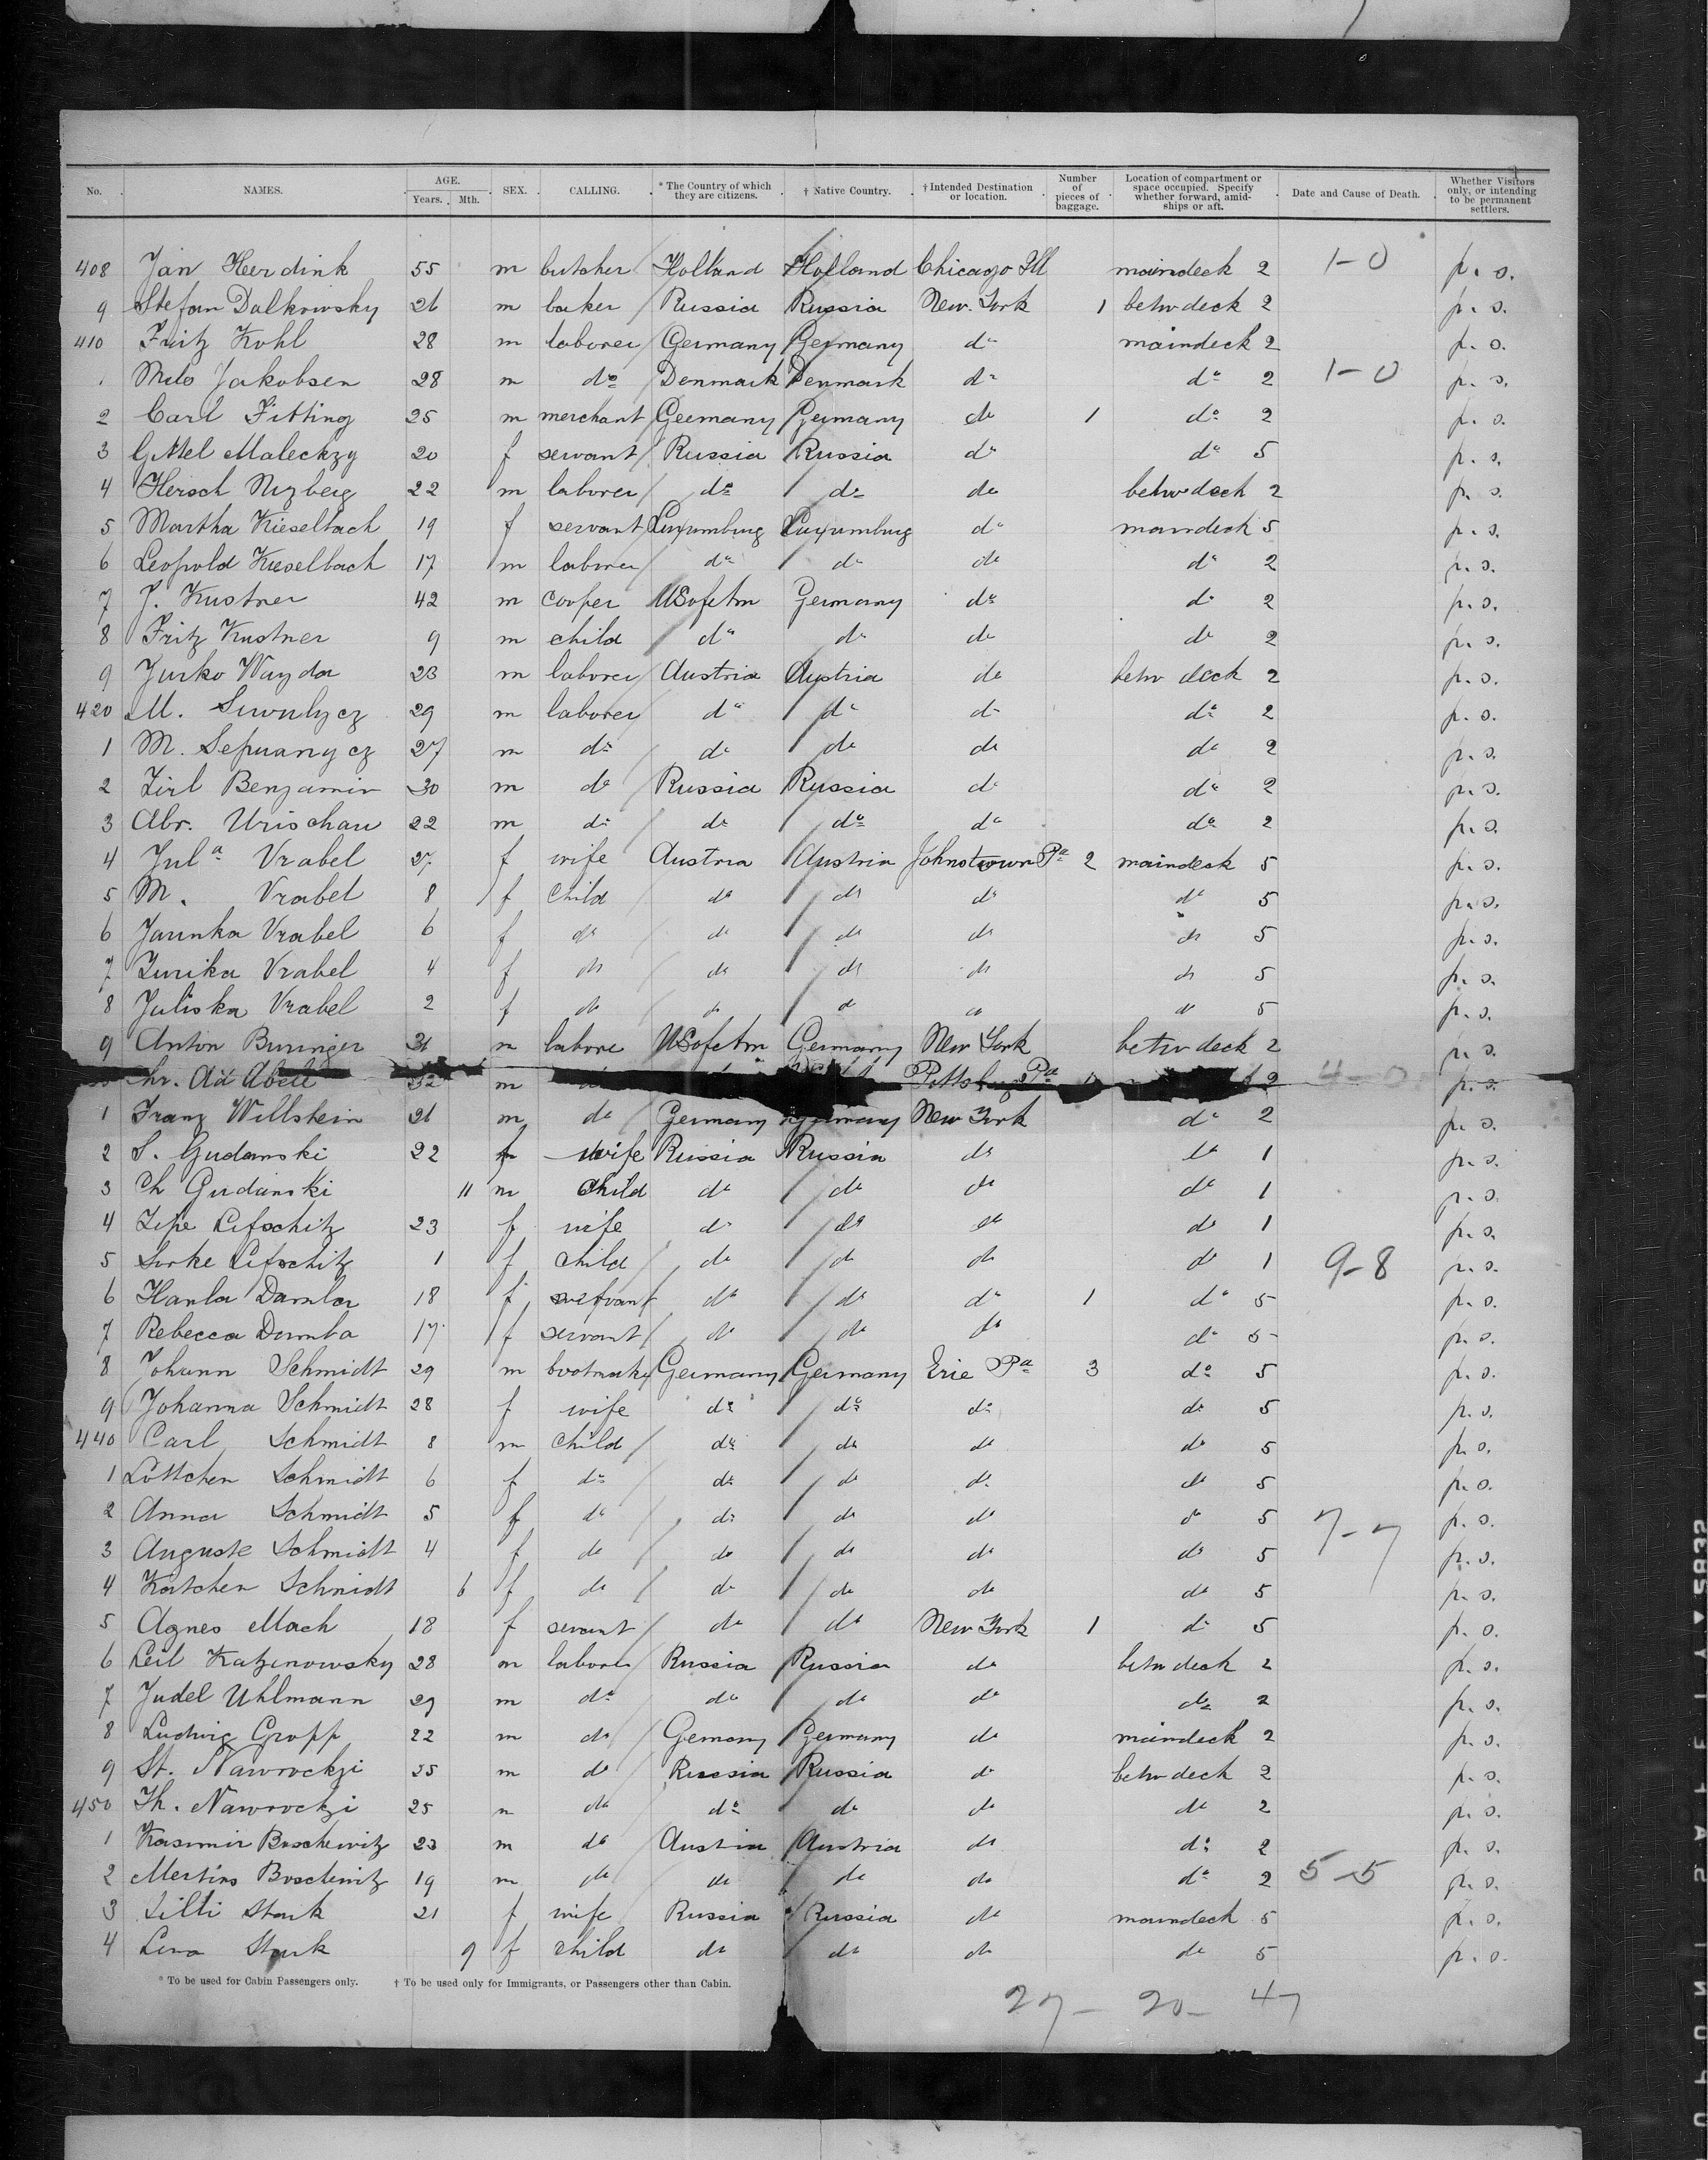 No. NAMES. AGE. Years. Mth. SEX. CALLING. * The Country of which they are citizens. † Native Country. † Intended Destination or location. Number of pieces of baggage. Location of compartment or space occupied. Specify whether forward, amidships or aft. Date and Cause of Death. Whether Visitors only, or intending to be permanent settlers.
408 Jan Herdink 55 m butcher Holland Holland Chicago Ill maindeck 2 1-0 p. s.
9 Stefan Dalkowsky 26 m baker Russia Russia New York 1 betw deck 2 p. s.
410 Fritz Kohl 28 m laborer Germany Germany do maindeck 2 p. s.
Jakobsen 28 m do Denmark Denmark do do 2 1-0 p. s.
2 Carl Fitting 25 m merchant Germany Germany do 1 do 2 p. s.
3 Maleckzy 20 f servant Russia Russia do do 5 p. s.
4 Hersch 22 m laborer do do do betw deck 2 p. s.
5 Martha Kieselbach 19 f servant Luxumburg Luxumburg do maindeck 5 p. s.
6 Leopold Kieselbach 17 m laborer do do do do 2 p. s.
7 J. Kustner 42 m cooper USofAm Germany do do 2 p. s.
8 Fritz Kustner 9 m child do do do do 2 p. s.
9 Jurko Wayda 23 m laborer Austria Austria do betw deck 2 p. s.
420 M. 29 m laborer do do do do 2 p. s.
1 M. 27 m do do do do do 2 p. s.
2 Zirl Benjamin 30 m do Russia Russia do do 2 p. s.
3 Abr. Urischau 22 m do do do do do 2 p. s.
4 Jula Vrabel 27 f wife Austria Austria Johnstown Pa 2 maindeck 5 p. s.
5 M. Vrabel 8 f child do do do do 5 p. s.
6 Vrabel 6 f do do do do do 5 p. s.
7 Vrabel 4 f do do do do do 5 p. s.
8 Juliska Vrabel 2 f do do do do do 5 p. s.
9 Anton Buringer m labore USofAm Germany New York betw deck 2 p. s.
Chr. Ad Abele 32 m Pa 2 4-0 p. s.
1 Franz Willstein 26 m do Germany Germany New York do 2 p. s.
2 S. Gudanski 22 f wife Russia Russia do do 1 p. s.
3 Ch Gudanski 11 m child do do do do 1 p. s.
4 Zipe Lifschitz 23 f wife do do do do 1 p. s.
5 Sorke Lifschitz 1 f child do do do do 1 9-8 p. s.
6 18 f servant do do do 1 do 5 p. s.
7 Rebecca 17 f servant do do do do 5 p. s.
8 Johann Schmidt 29 m bootmaker Germany Germany Erie Pa 3 do 5 p. s.
9 Johanna Schmidt 28 f wife do do do do 5 p. s.
440 Carl Schmidt 8 m child do do do do 5 p. s.
1 Lottchen Schmidt 6 f do do do do do 5 p. s.
2 Anna Schmidt 5 f do do do do do 5 7-7 p. s.
3 Auguste Schmidt 4 f do do do do do 5 p. s.
4 Katchen Schmidt 6 f do do do do do 5 p. s.
5 Agnes Mach 18 f servant do do New York 1 do 5 p. s.
6 Leil Katzenowsky 28 m labore Russia Russia do betw deck 2 p. s.
7 Judel Uhlmann 29 m do do do do do 2 p. s.
8 Ludwig Gropp 22 m do Germany Germany do maindeck 2 p. s.
9 St. Nawrockzi 25 m do Russia Russia do betw deck 2 p. s.
450 Th. Nawrockzi 25 m do do do do do 2 p. s.
1 Kasimir Boschewitz 23 m do Austria Austria do do 2 p. s.
2 Boschewitz 19 m do do do do do 2 5-5 p. s.
3 Lilli Stark 21 f wife Russia Russia do maindeck 5 p. s.
4 Lena Stark 9 f child do do do do 5 p. s.
* To be used for Cabin Passengers only. † To be used only for Immigrants, or Passengers other than Cabin.
27 - 20 - 47